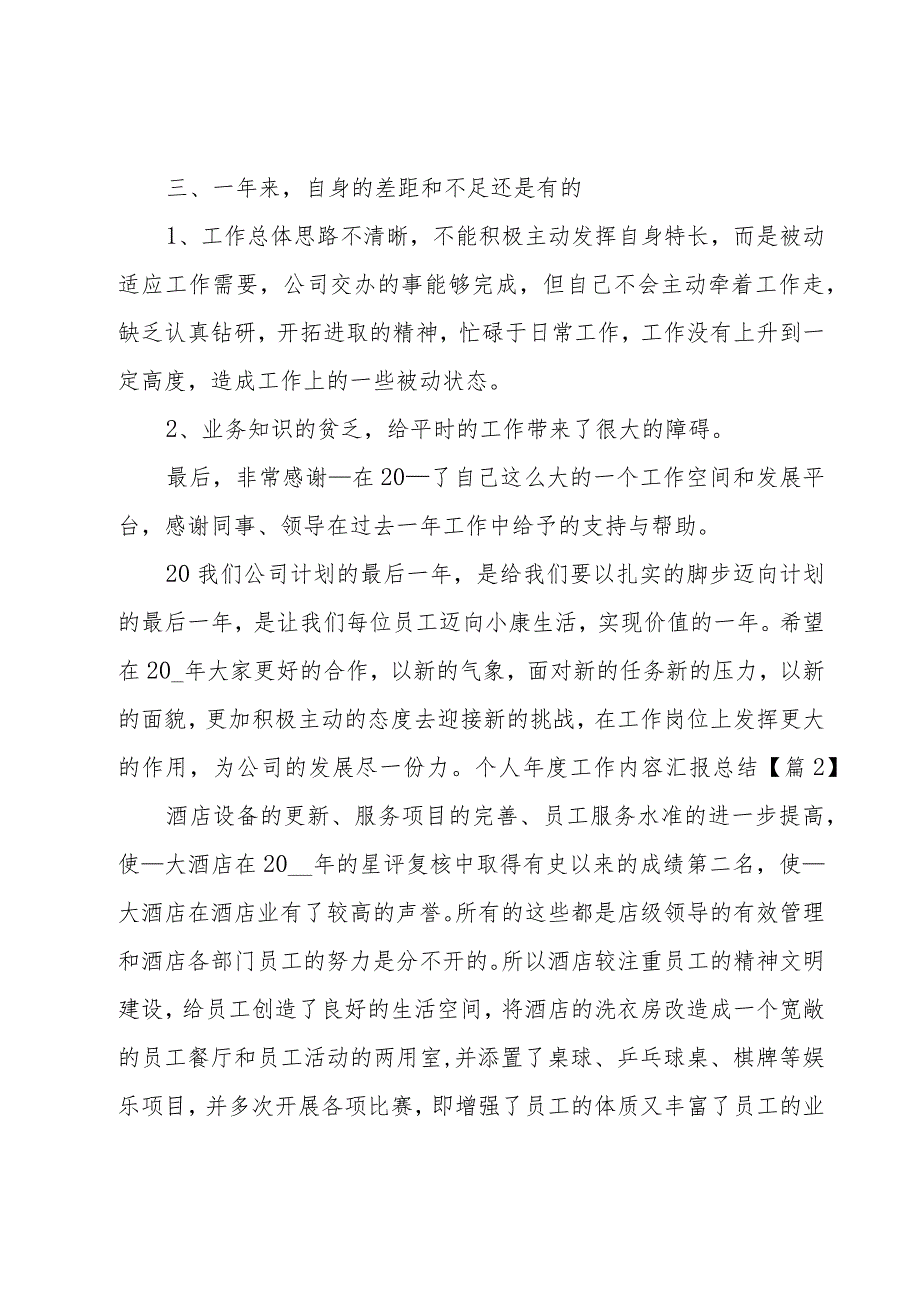 三、一年来，自身的差距和不足还是有的
1、工作总体思路不清晰，不能积极主动发挥自身特长，而是被动
适应工作需要，公司交办的事能够完成，但自己不会主动牵着工作走，
缺乏认真钻研，开拓进取的精神，忙碌于日常工作，工作没有上升到一
定高度，造成工作上的一些被动状态。
2、业务知识的贫乏，给平时的工作带来了很大的障碍。
最后，非常感谢—在 20—了自己这么大的一个工作空间和发展平
台，感谢同事、领导在过去一年工作中给予的支持与帮助。
20 我们公司计划的最后一年，是给我们要以扎实的脚步迈向计划
的最后一年，是让我们每位员工迈向小康生活，实现价值的一年。希望
在 20_年大家更好的合作，以新的气象，面对新的任务新的压力，以新
的面貌，更加积极主动的态度去迎接新的挑战，在工作岗位上发挥更大
的作用，为公司的发展尽一份力。个人年度工作内容汇报总结【篇 2】
酒店设备的更新、服务项目的完善、员工服务水准的进一步提高，
使—大酒店在 20__年的星评复核中取得有史以来的成绩第二名，使—
大酒店在酒店业有了较高的声誉。所有的这些都是店级领导的有效管理
和酒店各部门员工的努力是分不开的。所以酒店较注重员工的精神文明
建设，给员工创造了良好的生活空间，将酒店的洗衣房改造成一个宽敞
的员工餐厅和员工活动的两用室,并添置了桌球、乒乓球桌、棋牌等娱
乐项目，并多次开展各项比赛，即增强了员工的体质又丰富了员工的业